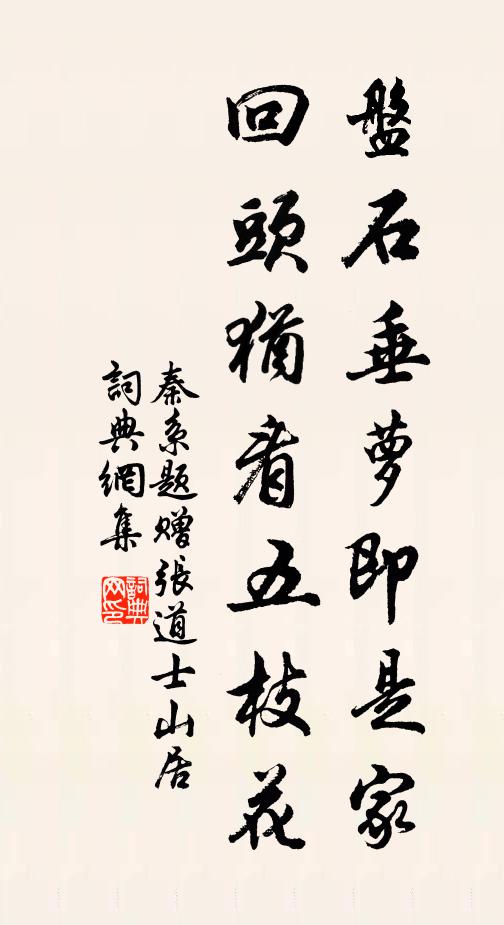 盤石垂萝即是家
回頭猶看五枝花
秦系題贈張道士山居
詞典網集
詞典
网印